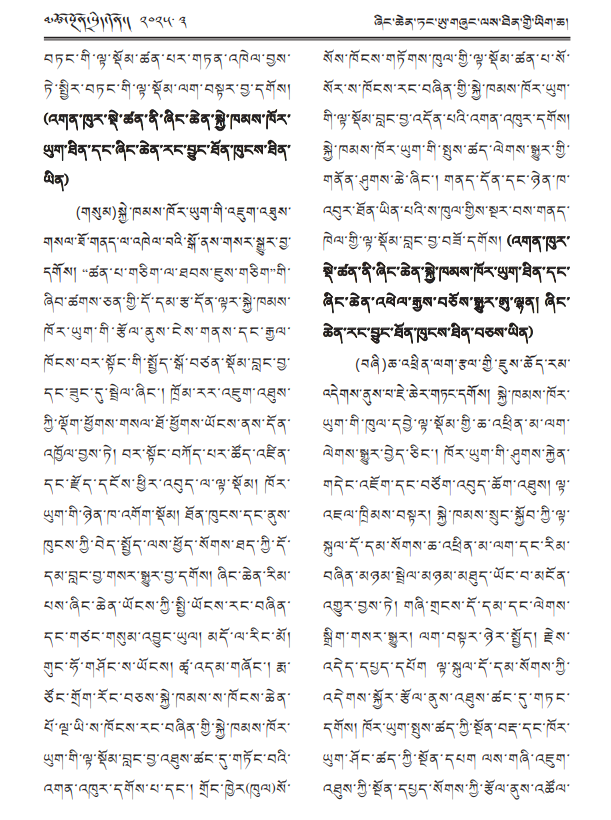 མཚོ་སྔོན་སྲིད་གཞུང་། ༢༠༢༥·༣
ཞིང་ཆེན་ཏང་ཨུ་གཞུང་ལས་ཐིན་གྱི་ཡིག་ཆ།
བཏང་གི་ལྟ་སྡོམ་ཚན་པར་གཏན་འཁེལ་བྱས་
ཏེ་སྤྱིར་བཏང་གི་ལྟ་སྡོམ་ལག་བསྟར་བྱ་དགོས།
(འགན་ཁུར་སྡེ་ཚན་ནི་ཞིང་ཆེན་སྐྱེ་ཁམས་ཁོར་
ཡུག་ཐིན་དང་ཞིང་ཆེན་རང་བྱུང་ཐོན་ཁུངས་ཐིན་
ཡིན)
(གསུམ)སྐྱེ་ཁམས་ཁོར་ཡུག་གི་འཇུག་འཐུས་
གསལ་ཐོ་གནད་ལ་འཁེལ་བའི་སྒོ་ནས་གསར་སྒྱུར་བྱ་
དགོས། “ཚན་པ་གཅིག་ལ་ཐབས་ཇུས་གཅིག”གི་
ཞིབ་ཚགས་ཅན་གྱི་དོ་དམ་རྩ་དོན་ལྟར་སྐྱེ་ཁམས་
ཁོར་ཡུག་གི་རྩོལ་ནུས་ངེས་གནས་དང་རྒྱལ་
ཁོངས་བར་སྟོང་གི་སྤྱོད་སྒོ་བཙན་སྡོམ་བླང་བྱ་
དང་ཟུང་དུ་སྦྲེལ་ཞིང་། ཁྲོམ་རར་འཇུག་འཐུས་
ཀྱི་ལྡོག་ཕྱོགས་གསལ་ཐོ་ཕྱོགས་ཡོངས་ནས་དོན་
འཁྱོལ་བྱས་ཏེ། བར་སྟོང་བཀོད་པར་ཚོད་འཛིན་
དང་རྫོད་དངོས་ཕྱིར་འབུད་ལ་ལྟ་སྡོམ། ཁོར་
ཡུག་གི་ཉེན་ཁ་འགོག་སྡོམ། ཐོན་ཁུངས་དང་ནུས་
ཁུངས་ཀྱི་བེད་སྤྱོད་ལས་ཕྱོད་སོགས་ཐད་ཀྱི་དོ་
དམ་བླང་བྱ་གསར་སྒྱུར་བྱ་དགོས། ཞིང་ཆེན་རིམ་
པས་ཞིང་ཆེན་ཡོངས་ཀྱི་སྤྱི་ཡོངས་རང་བཞིན་
དང་གཙང་གསུམ་འབྱུང་ཡུལ། མདོ་ལ་རིང་མོ།
གུང་ཧོ་གཤོང་ས་ཡོངས། ཚྭ་འདམ་གཞོང་། རྨ་
ཙོང་གྲོག་རོང་བཅས་སྐྱེ་ཁམས་ས་ཁོངས་ཆེན་
པོ་ལྔ་ཡི་ས་ཁོངས་རང་བཞིན་གྱི་སྐྱེ་ཁམས་ཁོར་
ཡུག་གི་ལྟ་སྡོམ་བླང་བྱ་འཐུས་ཚང་དུ་གཏོང་བའི་
འགན་འཁུར་དགོས་པ་དང་། གྲོང་ཁྱེར(ཁུལ)སོ་
སོས་ཁོངས་གཏོགས་ཁུལ་གྱི་ལྟ་སྡོམ་ཚན་པ་སོ་
སོར་ས་ཁོངས་རང་བཞིན་གྱི་སྐྱེ་ཁམས་ཁོར་ཡུག་
གི་ལྟ་སྡོམ་བླང་བྱ་འདོན་པའི་འགན་འཁུར་དགོས།
སྐྱེ་ཁམས་ཁོར་ཡུག་གི་སྤུས་ཚད་ལེགས་སྒྱུར་གྱི་
གནོན་ཤུགས་ཆེ་ཞིང་། གནད་དོན་དང་ཉེན་ཁ་
འབུར་ཐོན་ཡིན་པའི་ས་ཁུལ་གྱིས་སྔར་བས་གནད་
ཁེལ་གྱི་ལྟ་སྡོམ་བླང་བྱ་བཟོ་དགོས། (འགན་ཁུར་
སྡེ་ཚན་ནི་ཞིང་ཆེན་སྐྱེ་ཁམས་ཁོར་ཡུག་ཐིན་དང་
ཞིང་ཆེན་འཕེལ་རྒྱས་བཅོས་སྒྱུར་ཨུ་ལྷན། ཞིང་
ཆེན་རང་བྱུང་ཐོན་ཁུངས་ཐིན་བཅས་ཡིན)
(བཞི)ཆ་འཕྲིན་ལག་རྩལ་གྱི་ཇུས་ཆོད་རམ་
འདེགས་ནུས་པ་ཇེ་ཆེར་གཏང་དགོས། སྐྱེ་ཁམས་ཁོར་
ཡུག་གི་ཁུལ་དབྱེ་ལྟ་སྡོམ་གྱི་ཆ་འཕྲིན་མ་ལག་
ལེགས་སྒྱུར་བྱེད་ཅིང་། ཁོར་ཡུག་གི་ཤུགས་རྐྱེན་
གདེང་འཇོག་དང་བཙོག་འབུད་ཆོག་འཐུས། ལྟ་
འཇལ་ཁྲིམས་བསྟར། སྐྱེ་ཁམས་སྲུང་སྐྱོབ་ཀྱི་ལྟ་
སྐུལ་དོ་དམ་སོགས་ཆ་འཕྲིན་མ་ལག་དང་རིམ་
བཞིན་མཉམ་སྦྲེལ་མཉམ་མཐུད་ཡོང་བ་མངོན་
འགྱུར་བྱས་ཏེ། གཞི་གྲངས་དོ་དམ་དང་ལེགས་
སྒྲིག་གསར་སྒྱུར། ལག་བསྟར་ཉེར་སྤྱོད། རྗེས་
འདེད་དཔྱད་དཔོག ལྟ་སྐུལ་དོ་དམ་སོགས་ཀྱི་
འདེགས་སྐྱོར་རྩོལ་ནུས་འཐུས་ཚང་དུ་གཏང་
དགོས། ཁོར་ཡུག་སྤུས་ཚད་ཀྱི་སྔོན་བརྡ་དང་ཁོར་
ཡུག་ཤོང་ཚད་ཀྱི་སྔོན་དཔག ལས་གཞི་འཇུག་
འཐུས་ཀྱི་སྔོན་དཔྱད་སོགས་ཀྱི་རྩོལ་ནུས་འཚོལ་